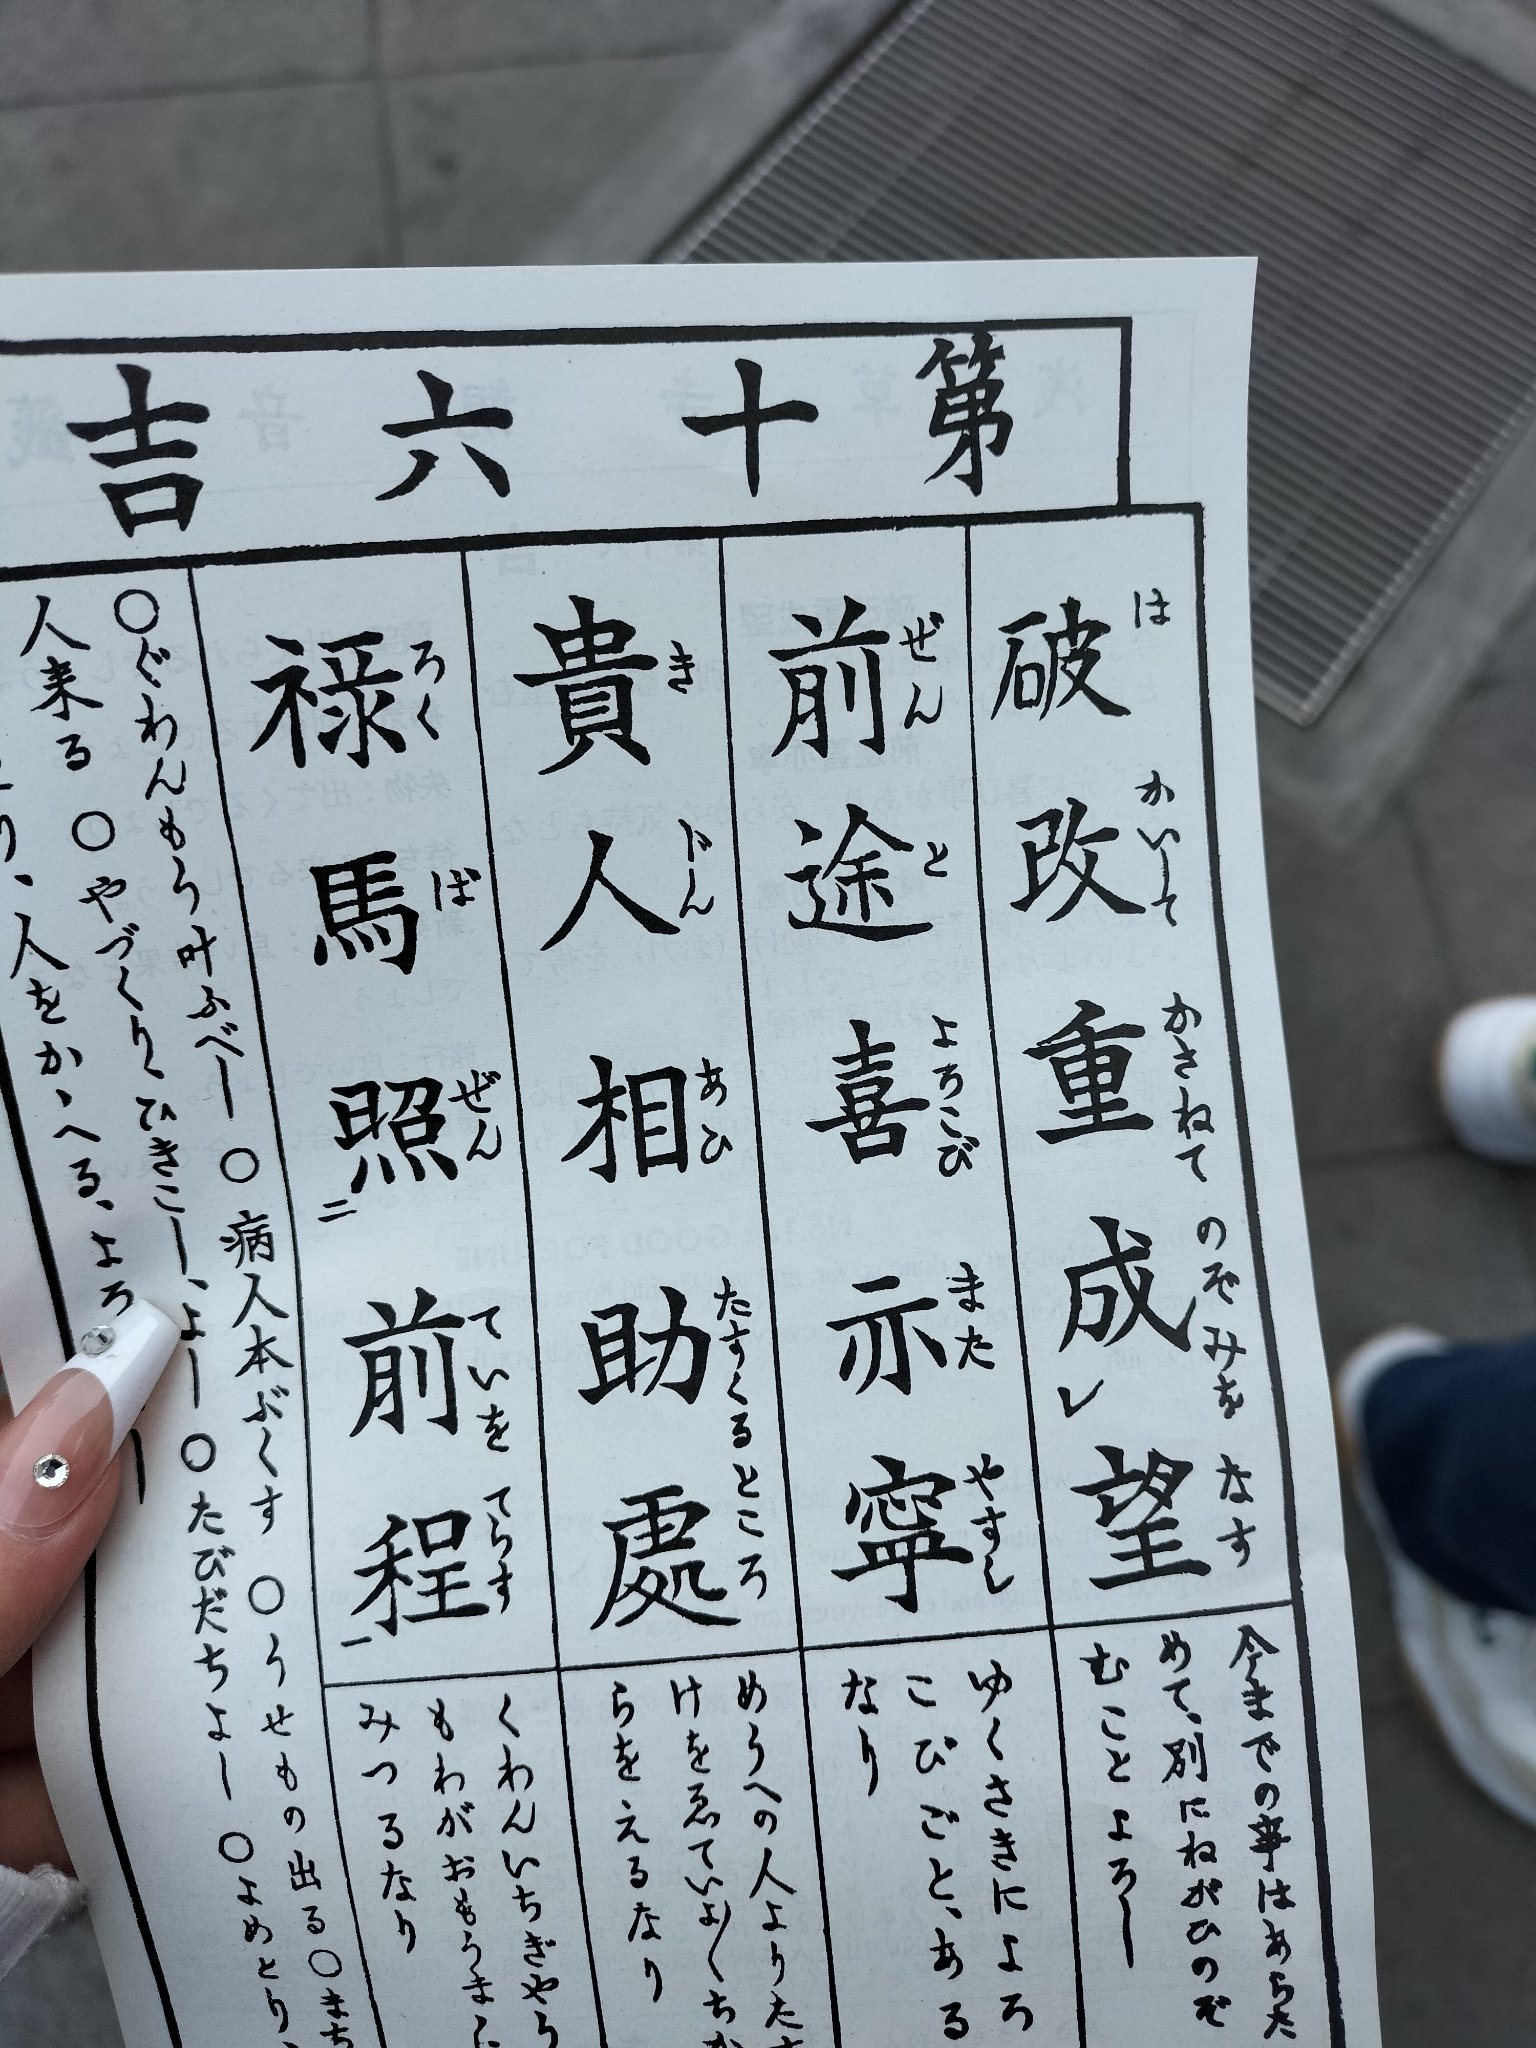 第十六吉
破改重成望
は かいして かさねて のぞみを なす
今までの事はあらた
めて、別にねがひのぞ
むことよろし
前途喜亦寧
ぜん と よろこび また やすし
ゆくさきによろ
こびごと、ある
なり
貴人相助處
き じん あひ たすくるところ
めうへの人よりたす
けを得ていよ〱ちか
らをえるなり
禄馬照前程
ろく ば ぜん ていを てらす
二 一
くわんいちぎやう
もわがおもうまゝに
みつるなり
○ぐわんもう叶ふべし ○病人本ぶくす ○うせもの出る ○まち
人来る ○やづくり、ひきこし、よし ○たびだちよし ○よめとり、
り、人をかゝへる、よろ